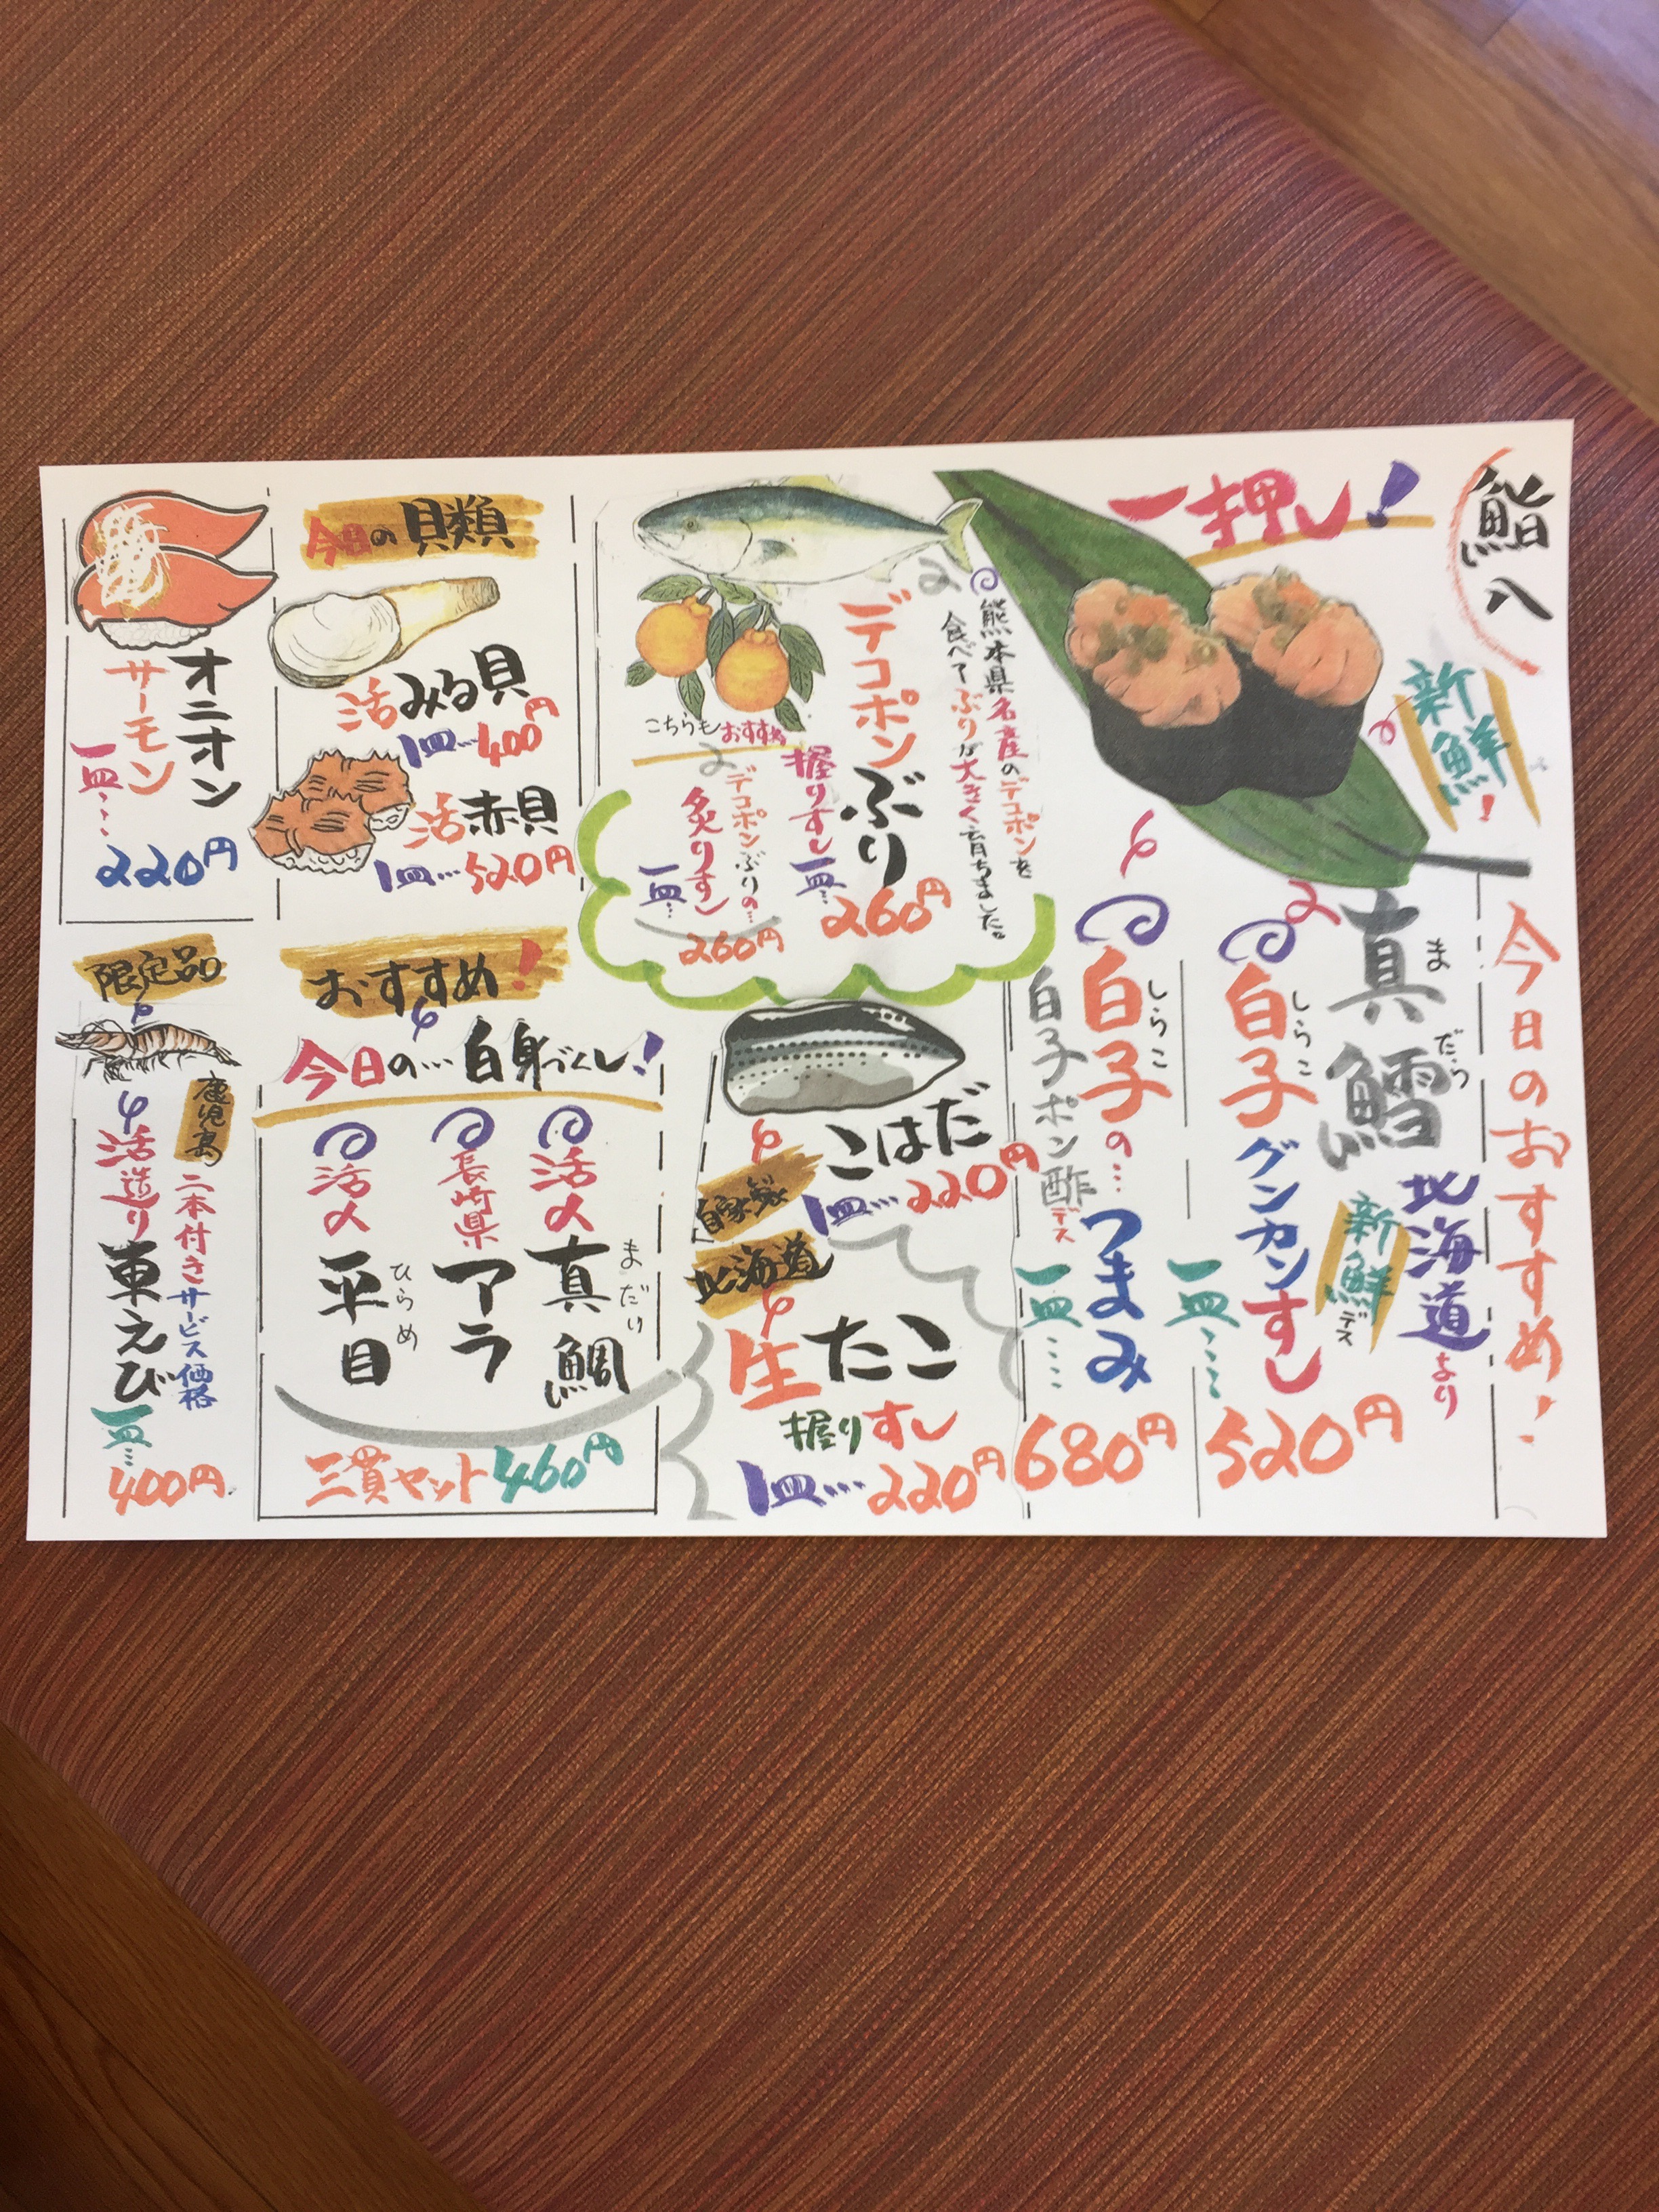 鮨八
新鮮!
一押し!
今日のおすすめ!
真鱈
まだら
北海道より
新鮮デス
白子グンカンすし
しらこ
一皿・・・・
520円
白子の・・・つまみ
しらこ
白子ポン酢デス
一皿・・・・
680円
熊本県名産のデコポンを
食べてぶりが大きく育ちました。
デコポンぶり
握りすし一皿・・・
260円
こちらもおすすめ
デコポンぶりの・・・
炙りすし
一皿・・・
260円
こはだ
自家製
1皿・・・220円
北海道
生たこ
握りすし
1皿・・・・220円
今日の貝類
活みる貝
1皿・・・400円
活赤貝
1皿・・・520円
おすすめ!
今日の・・・白身づくし!
活〆
真鯛
まだい
長崎県
アラ
活〆
平目
ひらめ
三貫セット460円
オニオン
サーモン
一皿・・・
220円
限定品
鹿児島
二本付きサービス価格
活造り
車えび
一皿・・・
400円